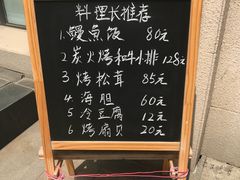 料理长推荐
1.鳗鱼饭 80元
2.炭火烤和牛小排 128元
3 烤松茸 85元
4 海胆 60元
5 冷豆腐 12元
6 烤扇贝 20元